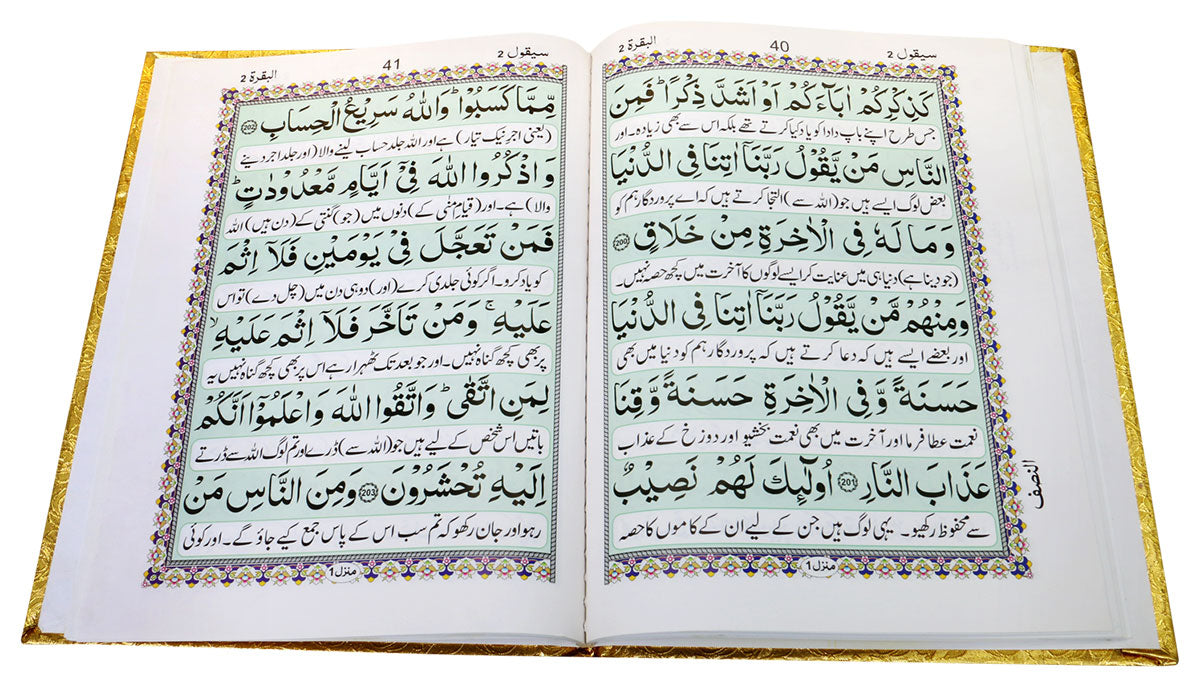 سيقول 2
40
البقرة 2
كَذِكْرِكُمْ اٰبَآءَكُمْ اَوْ اَشَدَّ ذِكْرًا ؕ فَمِنَ
جس طرح اپنے باپ دادا کو یاد کیا کرتے تھے بلکہ اس سے بھی زیادہ۔ اور
النَّاسِ مَنْ يَّقُوْلُ رَبَّنَاۤ اٰتِنَا فِى الدُّنْيَا
بعض لوگ ایسے ہیں جو (اللہ سے) التجا کرتے ہیں کہ اے پروردگار ہم کو
وَمَا لَهٗ فِى الْاٰخِرَةِ مِنْ خَلَاقٍ 200
(جو دینا ہے) دنیا ہی میں عنایت کر ایسے لوگوں کا آخرت میں کچھ حصہ نہیں۔
وَمِنْهُمْ مَّنْ يَّقُوْلُ رَبَّنَاۤ اٰتِنَا فِى الدُّنْيَا
اور بعضے ایسے ہیں کہ دعا کرتے ہیں کہ پروردگار ہم کو دنیا میں بھی
حَسَنَةً وَّفِى الْاٰخِرَةِ حَسَنَةً وَّقِنَا
نعمت عطا فرما اور آخرت میں بھی نعمت بخشیو اور دوزخ کے عذاب
عَذَابَ النَّارِ 201 اُولٰٓٮِٕكَ لَهُمْ نَصِيْبٌ
سے محفوظ رکھیو۔ یہی لوگ ہیں جن کے لیے ان کے کاموں کا حصہ
النصف
منزل 1
سيقول 2
41
البقرة 2
مِّمَّا كَسَبُوْا ؕ وَاللّٰهُ سَرِيْعُ الْحِسَابِ 202
(یعنی اجر نیک تیار) ہے اور اللہ جلد حساب لینے والا (اور جلد اجر دینے
وَاذْكُرُوا اللّٰهَ فِىْۤ اَيَّامٍ مَّعْدُوْدٰتٍ ؕ
والا) ہے۔ اور (قیام منٰی کے) دنوں میں (جو) گنتی کے (دن ہیں) اللہ
فَمَنْ تَعَجَّلَ فِىْ يَوْمَيْنِ فَلَاۤ اِثْمَ
کو یاد کرو۔ اگر کوئی جلدی کرے (اور) دو ہی دن میں (چل دے) تو اس
عَلَيْهِ ۚ وَمَنْ تَاَخَّرَ فَلَاۤ اِثْمَ عَلَيْهِ ۙ
پر بھی کچھ گناہ نہیں۔ اور جو بعد تک ٹھہرا رہے اس پر بھی کچھ گناہ نہیں یہ
لِمَنِ اتَّقٰى ؕ وَاتَّقُوا اللّٰهَ وَاعْلَمُوْۤا اَنَّكُمْ
باتیں اس شخص کے لیے ہیں جو (اللہ سے) ڈرے اور تم لوگ اللہ سے ڈرتے
اِلَيْهِ تُحْشَرُوْنَ 203 وَمِنَ النَّاسِ مَنْ
رہو اور جان رکھو کہ تم سب اس کے پاس جمع کیے جاؤ گے۔ اور کوئی
منزل 1